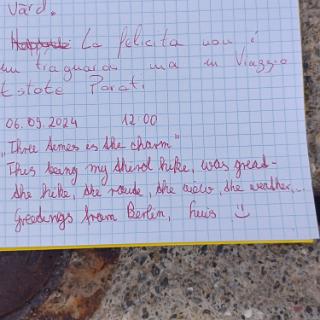 värd.
La felicita non è
un traguardo ma un Viaggio
Estote Parati
06.09.2024 12:00
„Three times is the charm"
This being my third hike, was great-
the hike, the route, the view, the weather,...
Greetings from Berlin, luis :)